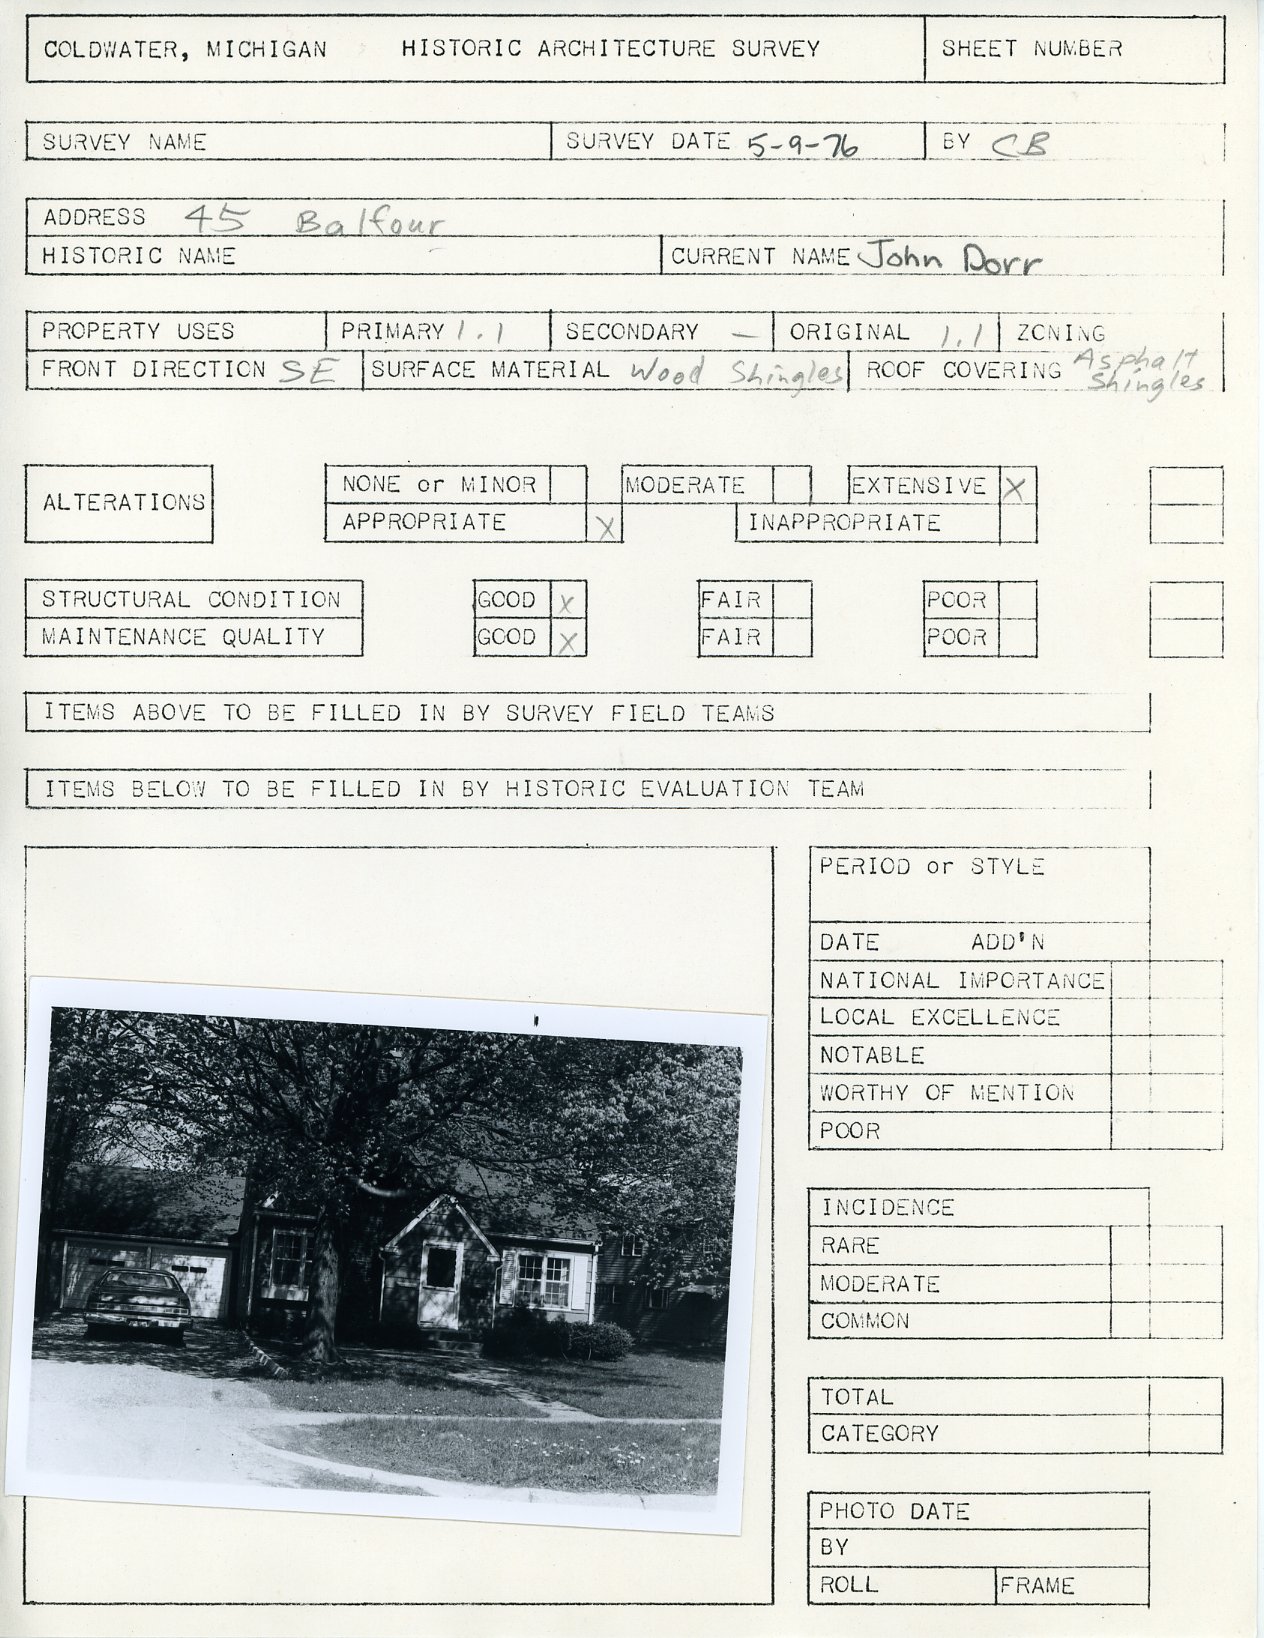 COLDWATER, MICHIGAN HISTORIC ARCHITECTURE SURVEY SHEET NUMBER
SURVEY NAME SURVEY DATE 5-9-76 BY CB
ADDRESS 45 Balfour
HISTORIC NAME CURRENT NAME John Dorr
PROPERTY USES PRIMARY 1.1 SECONDARY — ORIGINAL 1.1 ZONING
FRONT DIRECTION SE SURFACE MATERIAL Wood Shingles ROOF COVERING Asphalt Shingles
ALTERATIONS
NONE or MINOR MODERATE EXTENSIVE X
APPROPRIATE X INAPPROPRIATE
STRUCTURAL CONDITION GOOD X FAIR POOR
MAINTENANCE QUALITY GOOD X FAIR POOR
ITEMS ABOVE TO BE FILLED IN BY SURVEY FIELD TEAMS
ITEMS BELOW TO BE FILLED IN BY HISTORIC EVALUATION TEAM
PERIOD or STYLE
DATE ADD'N
NATIONAL IMPORTANCE
LOCAL EXCELLENCE
NOTABLE
WORTHY OF MENTION
POOR
INCIDENCE
RARE
MODERATE
COMMON
TOTAL
CATEGORY
PHOTO DATE
BY
ROLL FRAME